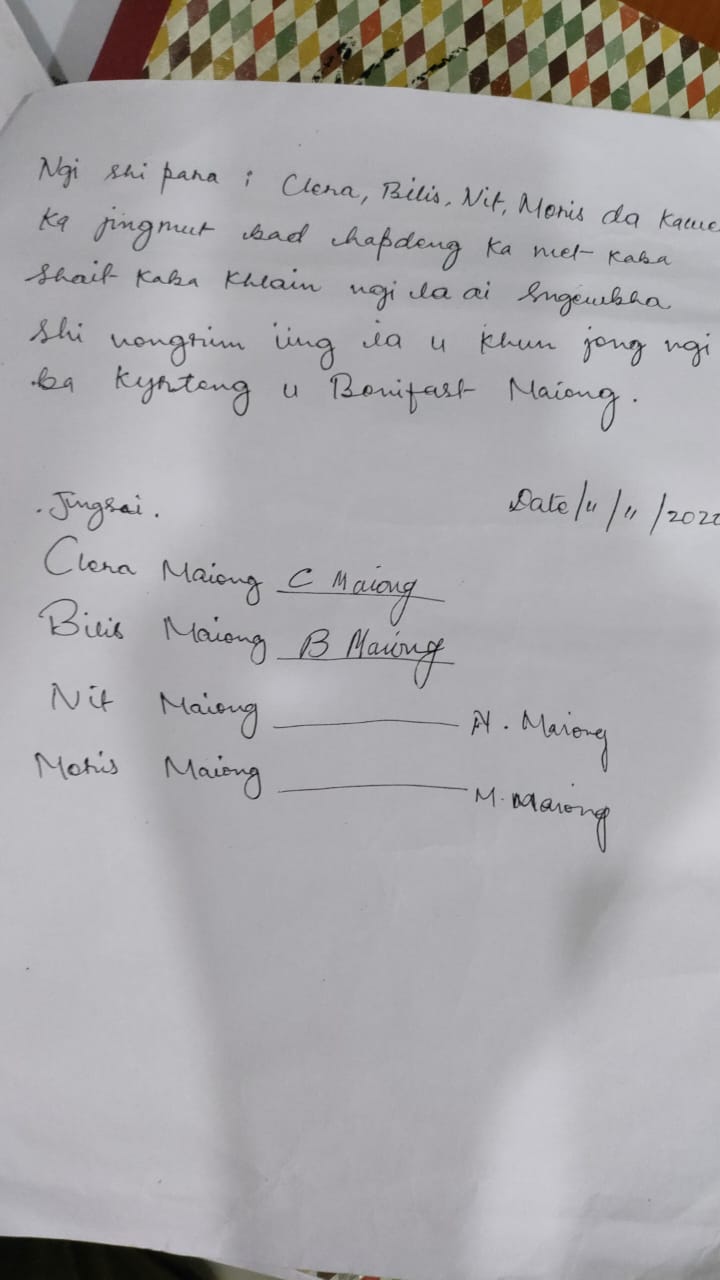 Ngi shi para ; Clera, Bilis, Nit, Moris da kawei
Ka jingmut bad hapdeng ka met kaba
Shait kaba khlain ngi la ai sngewbha
Shi nongrim iing ia u khun jong ngi
ba kyrteng u Bonifast Maiong.
. Jingsai . Date/11/11/2022
Clera Maiong C Maiong
Bilis Maiong B Maiong
Nit Maiong N. Maiong
Moris Maiong M. Maiong